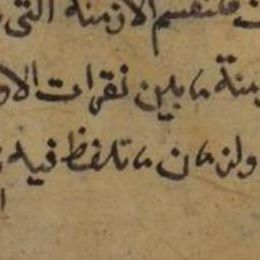 فلنقسم الازمنة التى
ازمنة ما بين نقرات الا
ولزمان ما تلفظ فيه